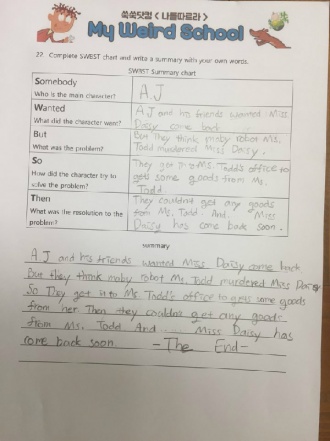 쏙쏙닷컴 <나를따르라>
My Weird School
22. Complete SWBST chart and write a summary with your own words.
SWBST Summary chart
Somebody
Who is the main character?
AJ
Wanted
What did the character want?
AJ and his friends wanted Miss
Daisy come back
But
What was the problem?
But They think maby robot Ms.
Todd murdered Miss Daisy.
So
How did the character try to
solve the problem?
They get into Ms. Todd's office to
gets some goods from Ms.
Todd.
Then
What was the resolution to the
problem?
They couldn't get any goods
from Ms. Todd. And. Miss
Daisy has come back soon.
summary
AJ and his friends wanted Miss Daisy come back
but they think maby robot Ms. Todd murdered Miss Daisy
So They get into Ms. Todd's office to gets some goods
from her Then they couldn't get any goods
from Ms. Todd And.... Miss Daisy has
come back soon. -The End-